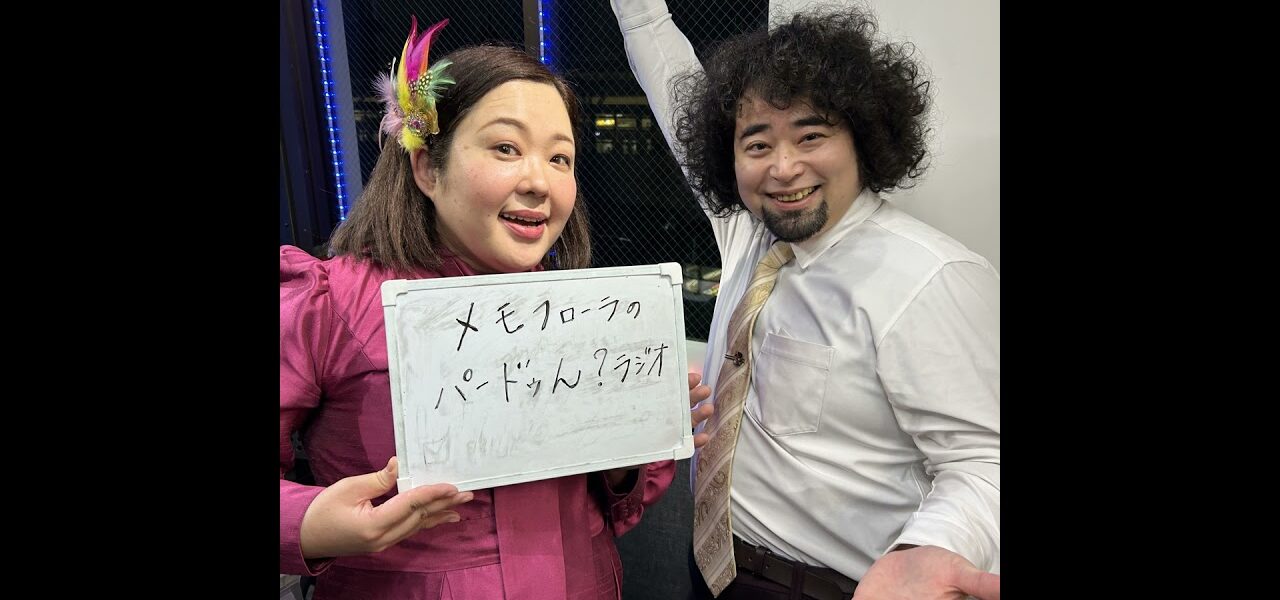 メモフローラの
パードゥん？ラジオ